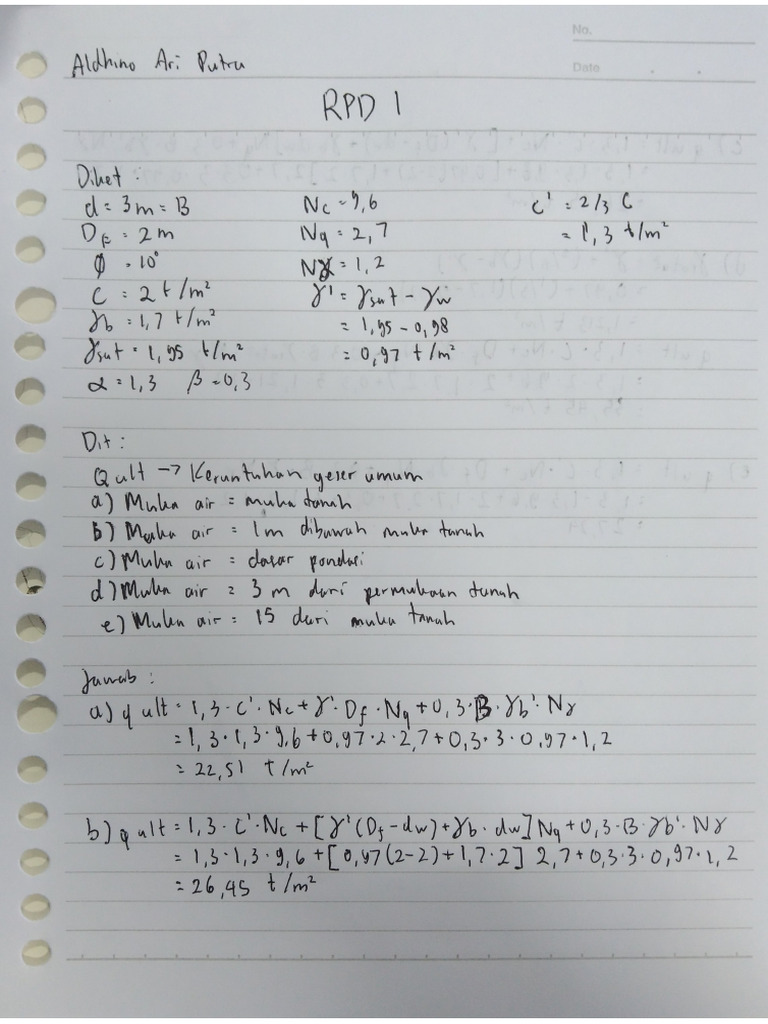 No.
Date
Aldhino Ari Putra
RPD 1
Diket :
d = 3 m = B Nc = 9,6 c' = 2/3 C
Df = 2 m Nq = 2,7 = 1,3 t/m²
φ = 10° Nγ = 1,2
C = 2 t/m² γ' = γsat - γw
γb = 1,7 t/m² = 1,95 - 0,98
γsat = 1,95 t/m² = 0,97 t/m²
α = 1,3 β = 0,3
Dit :
Qult → Keruntuhan geser umum
a) Muka air = muka tanah
b) Muka air = 1m dibawah muka tanah
c) Muka air = dasar pondasi
d) Muka air = 3 m dari permukaan tanah
e) Muka air = 15 dari muka tanah
Jawab :
a) q ult = 1,3 · C' · Nc + γ' · Df · Nq + 0,3 · B · γb' · Nγ
= 1,3 · 1,3 · 9,6 + 0,97 · 2 · 2,7 + 0,3 · 3 · 0,97 · 1,2
= 22,51 t/m²
b) q ult = 1,3 · C' · Nc + [γ' (Df - dw) + γb · dw] Nq + 0,3 · B · γb' · Nγ
= 1,3 · 1,3 · 9,6 + [0,97 (2-2) + 1,7 · 2] 2,7 + 0,3 · 3 · 0,97 · 1,2
= 26,45 t/m²